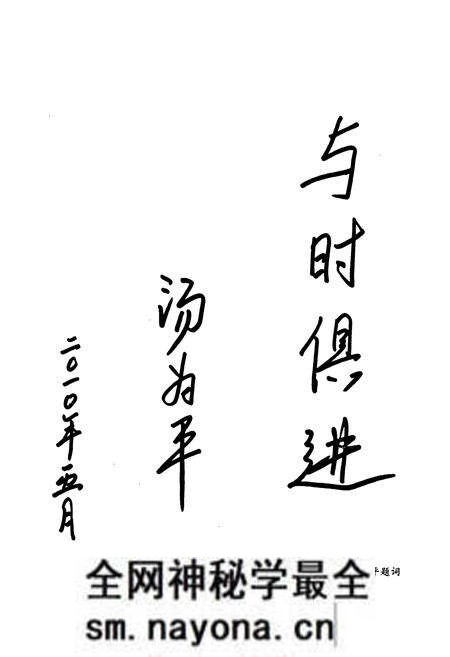 与时俱进
汤为平
二〇一〇年五月
题词
全网神秘学最全
sm.nayona.cn